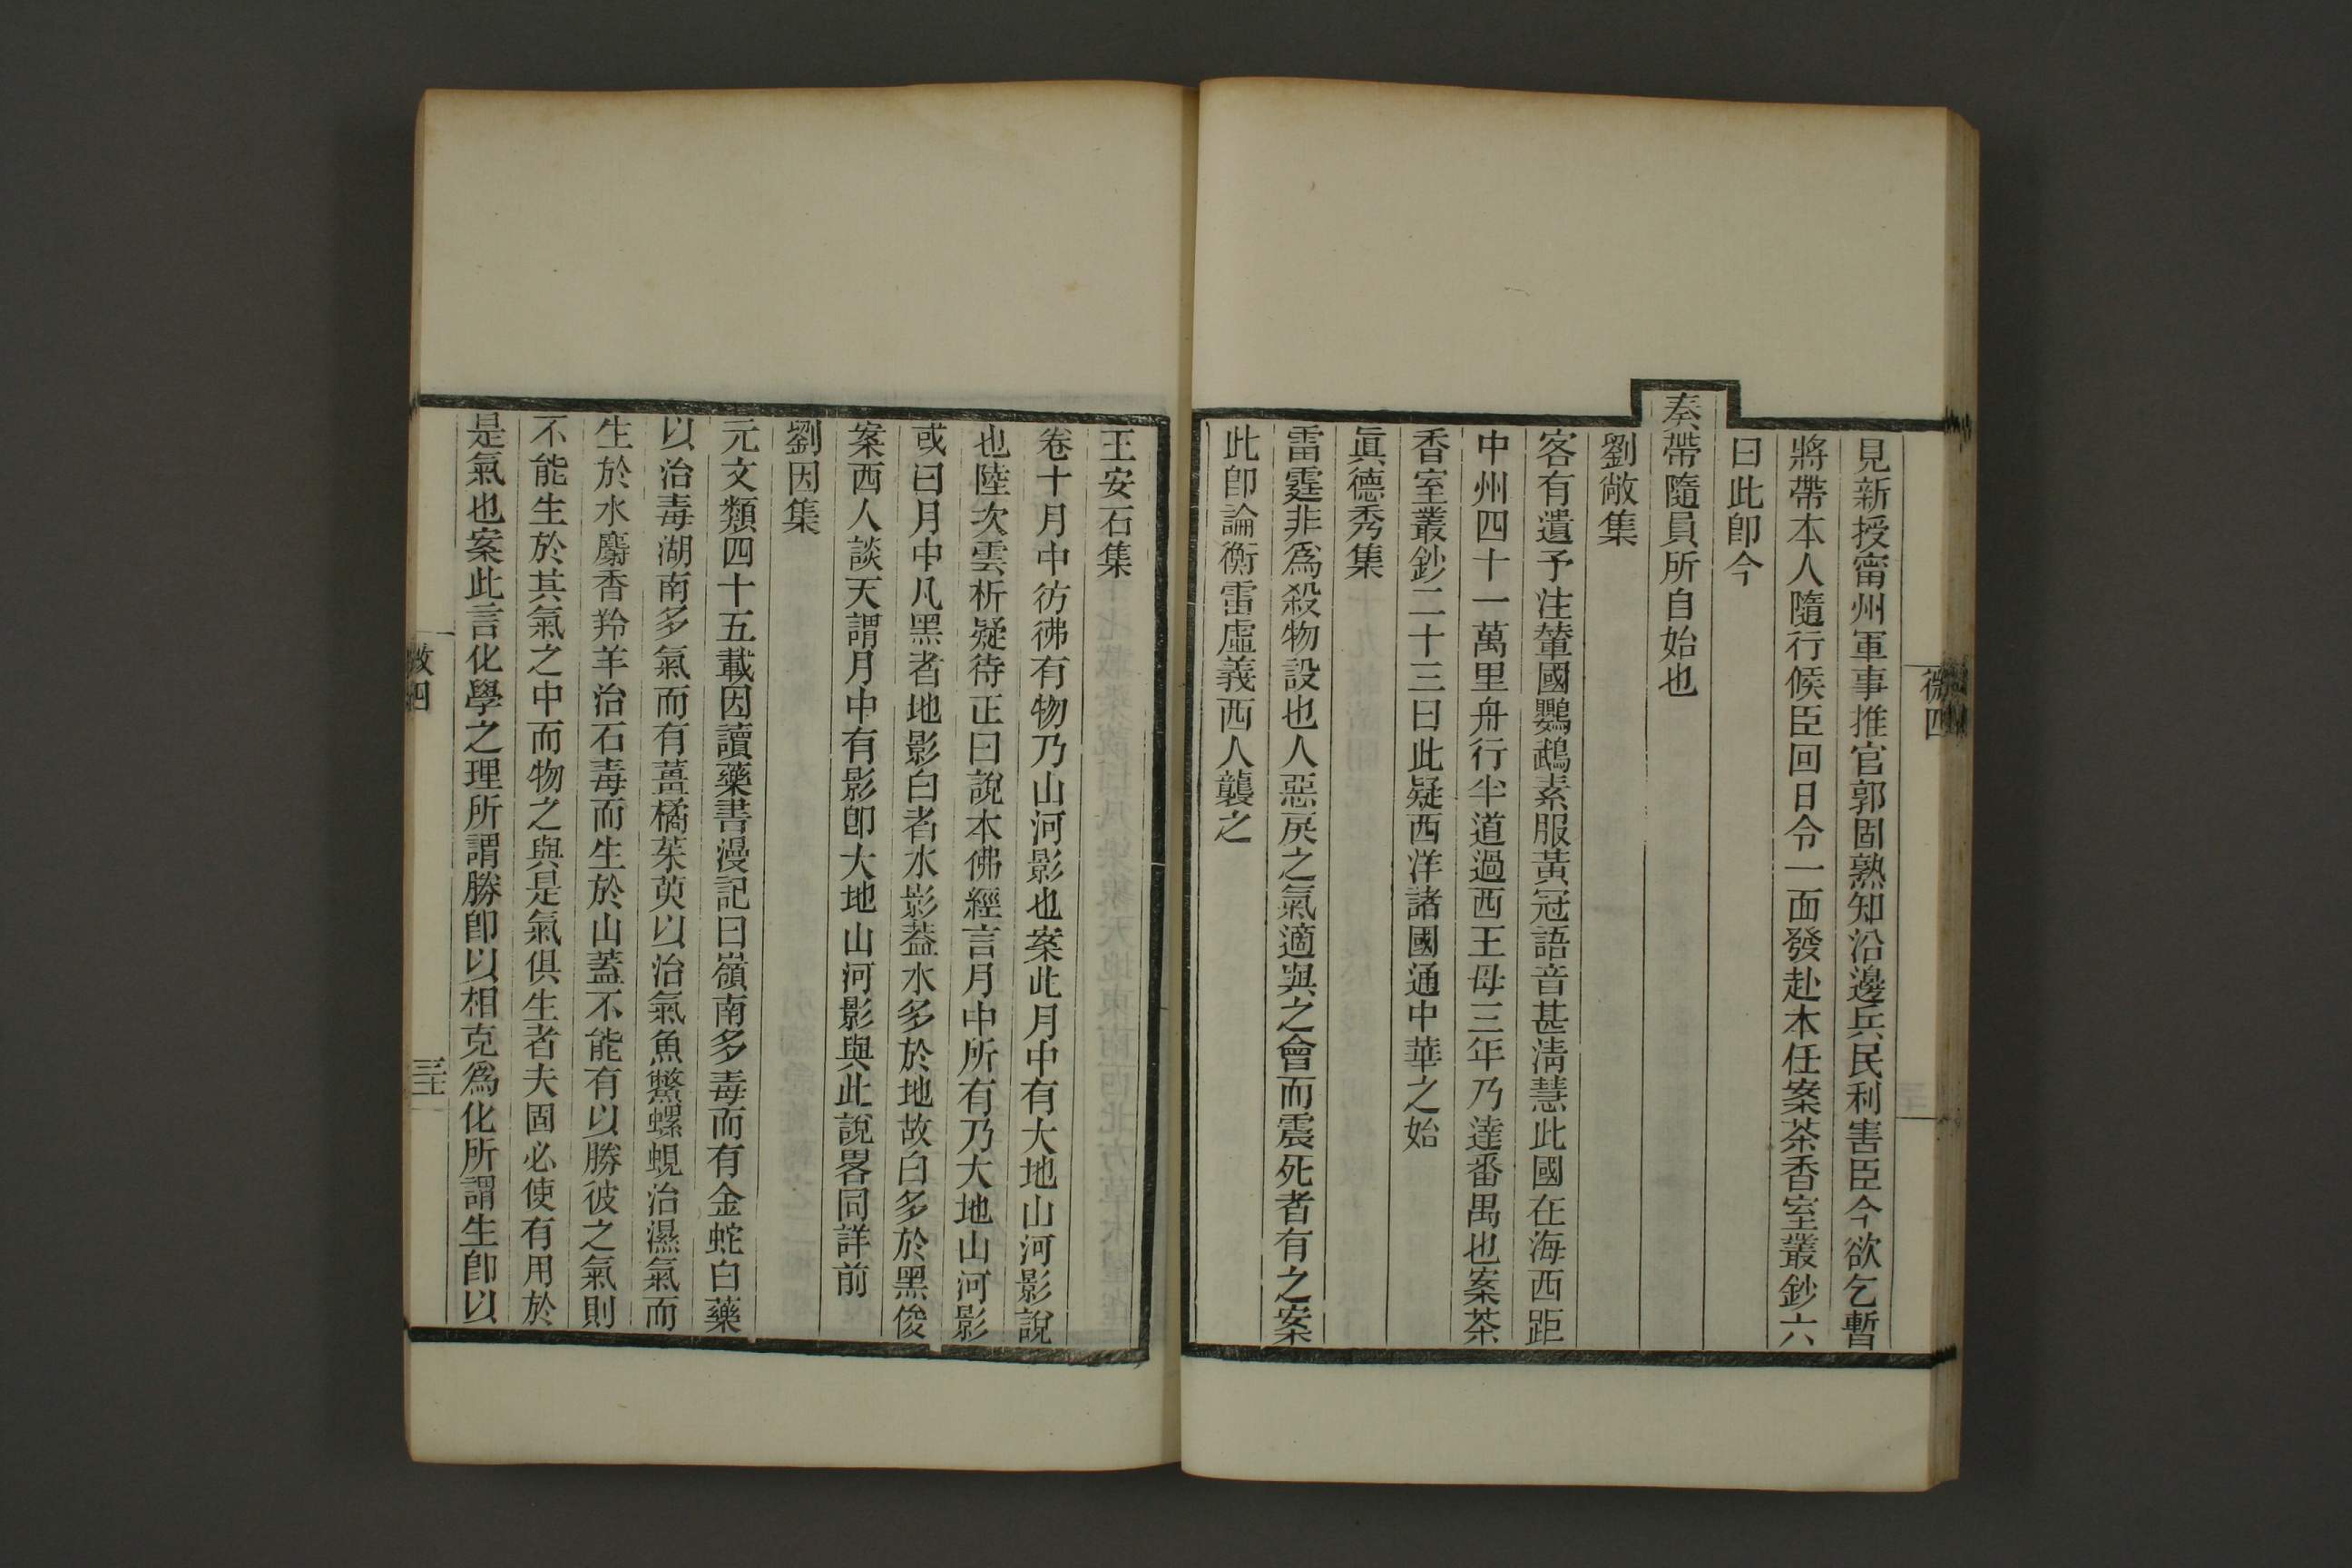 見新授甯州軍事推官郭固熟知沿邊兵民利害臣今欲乞暫
將帶本人隨行候臣回日令一面發赴本任案茶香室叢鈔六
曰此卽今
奏帶隨員所自始也
劉敞集
客有遺予注輦國鸚鵡素服黃冠語音甚淸慧此國在海西距
中州四十一萬里舟行半道過西王母三年乃達番禺也案茶
香室叢鈔二十三曰此疑西洋諸國通中華之始
眞德秀集
雷霆非爲殺物設也人惡戾之氣適與之會而震死者有之案
此卽論衡雷虛義西人襲之
王安石集
卷十月中彷彿有物乃山河影也案此月中有大地山河影說
也陸次雲析疑待正曰說本佛經言月中所有乃大地山河影
或曰月中凡黑者地影白者水影葢水多於地故白多於黑俊
案西人談天謂月中有影卽大地山河影與此說畧同詳前
劉因集
元文類四十五載因讀藥書漫記曰嶺南多毒而有金蛇白藥
以治毒湖南多氣而有薑橘茱萸以治氣魚鱉螺蜆治濕氣而
生於水麝香羚羊治石毒而生於山蓋不能有以勝彼之氣則
不能生於其氣之中而物之與是氣俱生者夫固必使有用於
是氣也案此言化學之理所謂勝卽以相克爲化所謂生卽以
微四